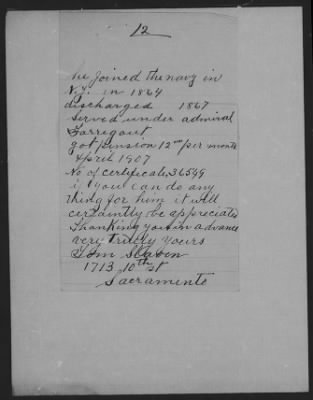 12
he joined the navy in
N.Y. in 1864
discharged 1867
served under admiral
Farrigout
got pension 12 00 per month
April 1907
No of certificate 36549
if you can do any
thing for him it will
certaintly be appreciated
Thanking you in advance
very truly yours
Tom Slaven
1713 10th st
Sacramento